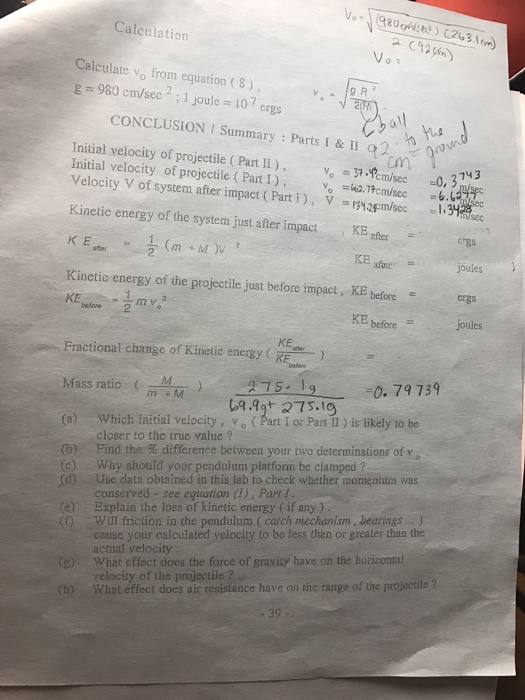 Calculation
Vo = √ (980 cm/sec²) (263.1cm)
2 (92cm)
Vo =
Calculate vo from equation ( 8 ) ,
g = 980 cm/sec 2 ; 1 joule = 10 7 ergs
vo = √ g R 2
2(H)
ball
92 cm to the ground
CONCLUSION / Summary : Parts I & II
Initial velocity of projectile ( Part II ) , vo = cm/sec = 0.3743 m/sec
Initial velocity of projectile ( Part I ) , vo = 662.77cm/sec = m/sec
Velocity V of system after impact ( Part i ) , V = cm/sec = m/sec
Kinetic energy of the system just after impact KE after = ergs
K E after = 1/2 ( m + M )V 2
KE after = joules
Kinetic energy of the projectile just before impact , KE before = ergs
KE before = 1/2 m vo 2
KE before = joules
Fractional change of Kinetic energy ( KE after / KE before ) =
Mass ratio ( M / m + M ) 275.1g / 69.9g + 275.1g = 0.79739
(a) Which initial velocity , vo ( Part I or Part II ) is likely to be
closer to the true value ?
(b) Find the % difference between your two determinations of vo .
(c) Why should your pendulum platform be clamped ?
(d) Use data obtained in this lab to check whether momentum was
conserved - see equation (1), Part I.
(e) Explain the loss of kinetic energy ( if any ) .
(f) Will friction in the pendulum ( catch mechanism , bearings ... )
cause your calculated velocity to be less than or greater than the
actual velocity .
(g) What effect does the force of gravity have on the horizontal
velocity of the projectile ?
(h) What effect does air resistance have on the range of the projectile ?
- 39 -